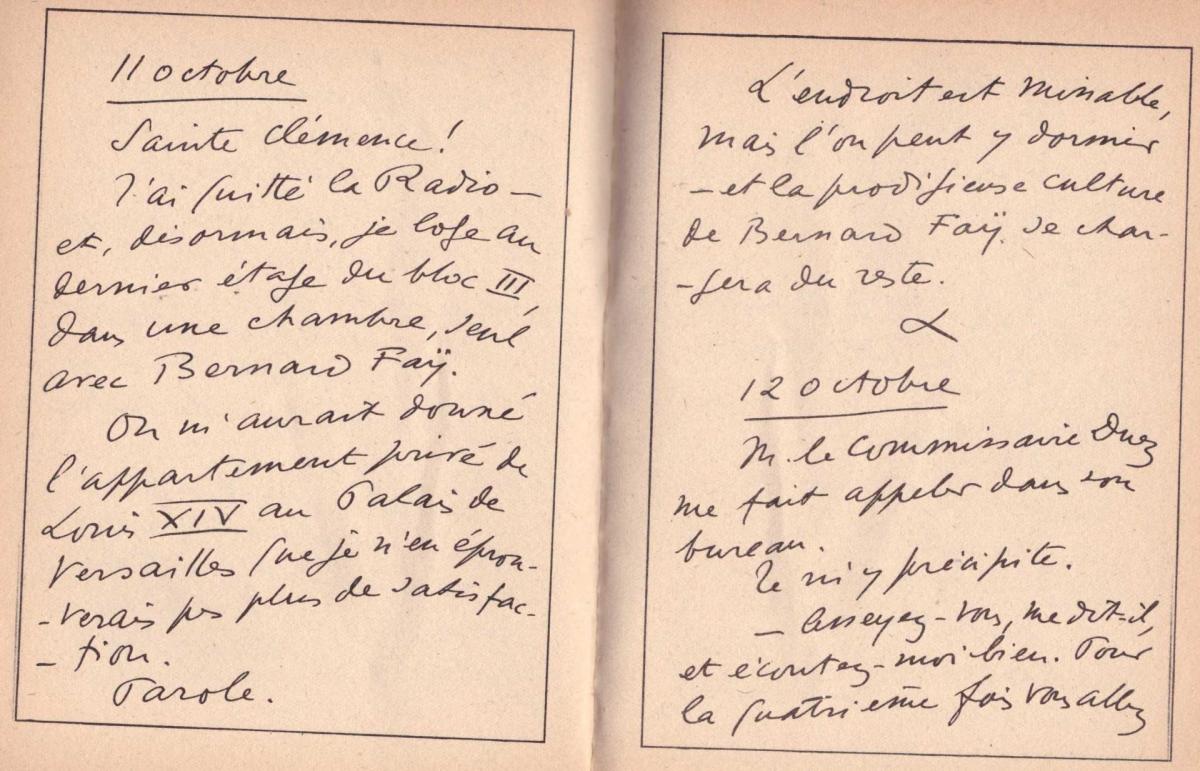 11 octobre
Sainte Clémence !
J'ai quitté la Radio –
et, désormais, je loge au
dernier étage du bloc III,
dans une chambre, seul
avec Bernard Faÿ.
On m'aurait donné
l'appartement privé de
Louis XIV au Palais de
Versailles que je n'en éprou-
-verais pas plus de satisfac-
-tion.
Parole.
L'endroit est minable,
mais l'on peut y dormir
– et la prodigieuse culture
de Bernard Faÿ se char-
-gera du reste.
12 octobre
M. le Commissaire Duez
me fait appeler dans son
bureau.
Je m'y précipite.
– Asseyez-vous, me dit-il,
et écoutez-moi bien. Pour
la quatrième fois vous allez